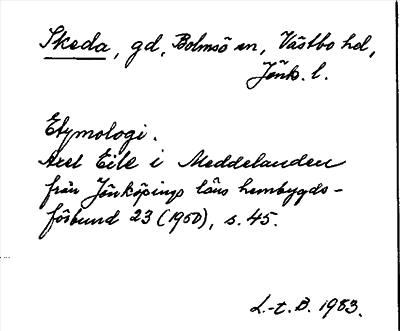 Skeda, gd, Bolmsö sn, Västbo hd,
Jönk. l.
Etymologi.
Axel Eile i Meddelanden
från Jönköpings läns hembygds-
förbund 23 (1950), s. 45.
L.-t. B. 1983.